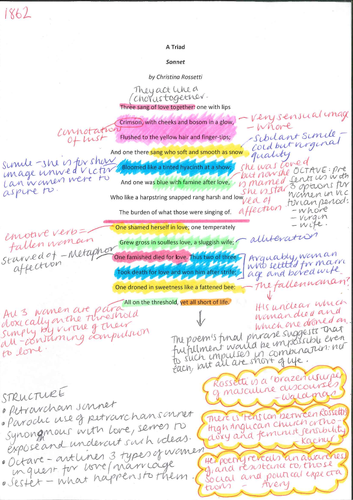 1862
A Triad
Sonnet
by Christina Rossetti
They act like a
chorus together.
Three sang of love together: one with lips
Crimson, with cheeks and bosom in a glow,
Flushed to the yellow hair and finger-tips;
And one there sang who soft and smooth as snow
Bloomed like a tinted hyacinth at a show;
And one was blue with famine after love,
Who like a harpstring snapped rang harsh and low
The burden of what those were singing of.
One shamed herself in love; one temperately
Grew gross in soulless love, a sluggish wife;
One famished died for love. Thus two of three
Took death for love and won him after strife;
One droned in sweetness like a fattened bee:
All on the threshold, yet all short of life.
connotation
of lust
very sensual image
- whore
-Sibilant simile -
cold but virginal
quality
Simile - she is for show
image unwed Victor
ian women were to
aspire to.
she was loved
but not
is married
she is star
ved of
affection
OCTAVE: pre
sents us with
3 options for
women in vic
torian period:
- whore
- virgin
- wife.
emotive verb -
fallen woman
Starved of - Metaphor
affection
alliteration
Arguably, woman
who settled for marri
age and bored wife.
- the fallen woman?
All 3 women are para
doxically on the threshold
simply by virtue of their
all-consuming compulsion
to love.
It is unclear which
woman died and
which one droned on.
The poem's final phrase suggests that
fulfillment would be impossible even
to such impulses in combination: not
each, but all are short of life.
STRUCTURE
• Petrarchan sonnet
• Parodic use of petrarchan sonnet
synonymous with love, serves to
expose and undercut such ideas.
• Octave - outlines 3 types of women
in quest for love/marriage
• Sestet - what happens to them.
Rossetti is a 'brazen usurper
of masculine discourses'
- Waldman
There is tension between Rossetti's
High Anglican church ortho
doxy and feminist sensibility
Her poem reveals an awareness
of and resistance to those
social and political expecta
tions - Avery